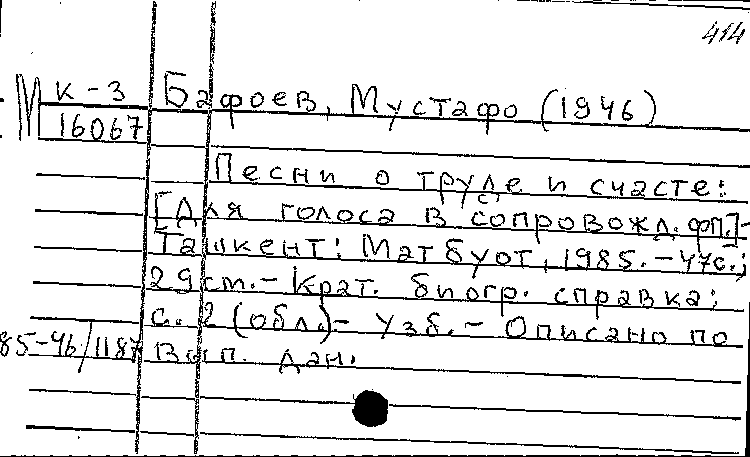 414
М к-3 Бафоев, Мустафо (1946)
16067
Песни о труде и счастье:
[Для голоса в сопровожд. фп.]-
Ташкент: Матбуот, 1985.-47с.;
29 ст.- Крат. биогр. справка:
с. 2 (обл.)- Узб.- Описано по
85-4б/1187 вып. дан.